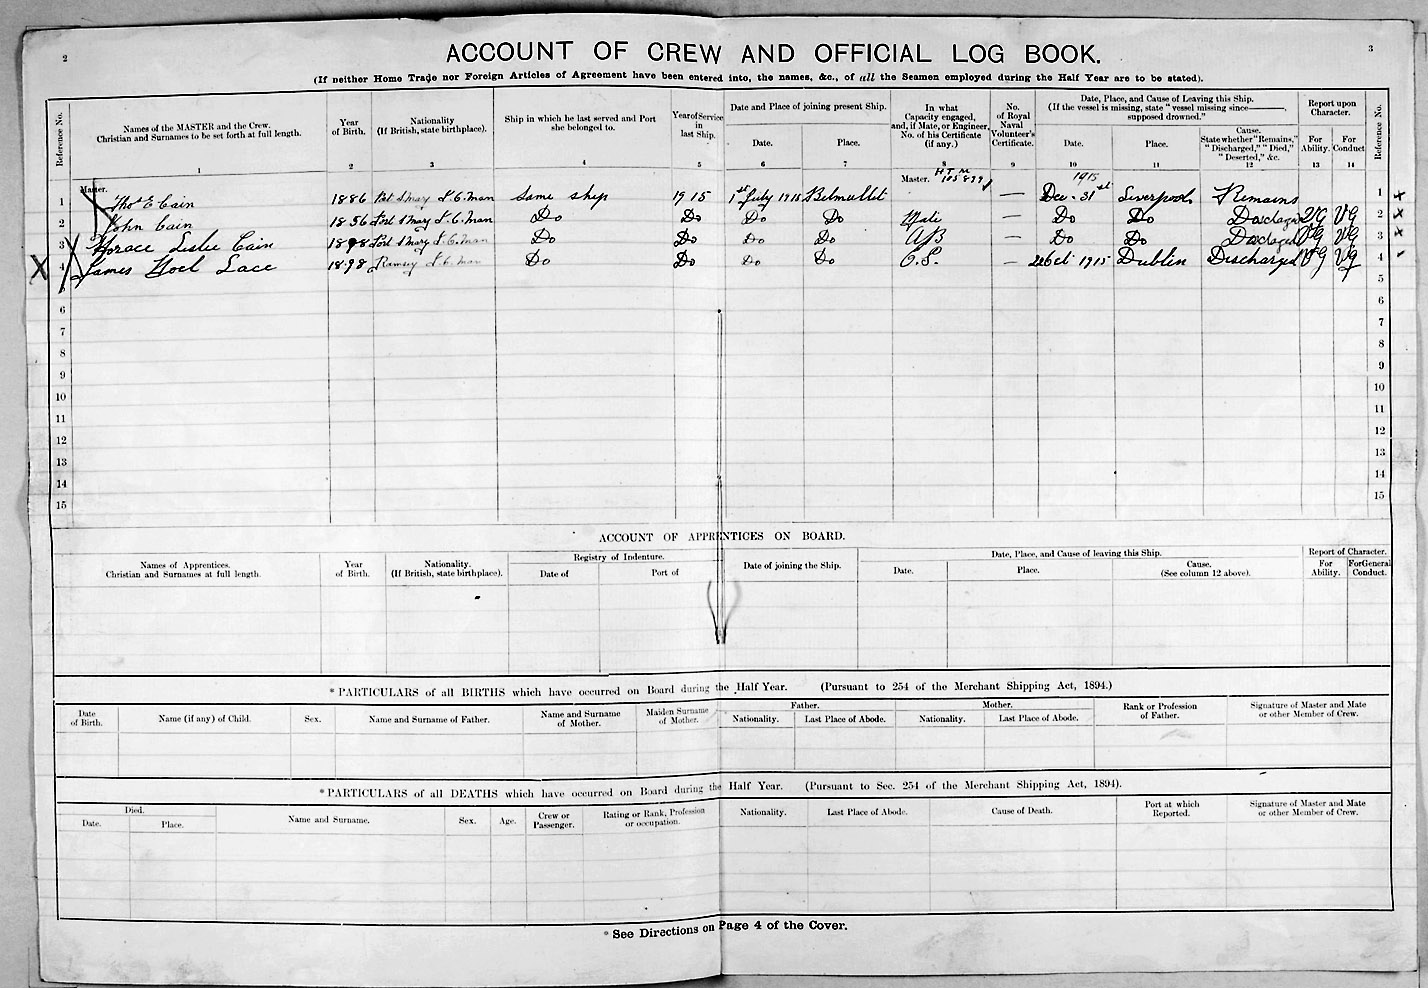 2
3
ACCOUNT OF CREW AND OFFICIAL LOG BOOK.
(If neither Home Trade nor Foreign Articles of Agreement have been entered into, the names, &c., of all the Seamen employed during the Half Year are to be stated).
Reference No.
Names of the MASTER and the Crew. Christian and Surnames to be set forth at full length.
Year of Birth.
Nationality (If British, state birthplace).
Ship in which he last served and Port she belonged to.
Year of Service in last Ship.
Date and Place of joining present Ship.
Date.
Place.
In what Capacity engaged, and, if Mate, or Engineer, No. of his Certificate (if any.)
No. of Royal Naval Volunteer's Certificate.
Date, Place, and Cause of Leaving this Ship. (If the vessel is missing, state "vessel missing since———, supposed drowned."
Date.
Place.
Cause. State whether "Remains," "Discharged," "Died," "Deserted," &c.
Report upon Character.
For Ability.
For Conduct
Reference No.
1 2 3 4 5 6 7 8 9 10 11 12 13 14
Master.
Master. H T M 105899
1915
1 Thos E Cain 1886 Port St Mary I. O. Man Same ship 1915 1st July 1915 Belmullet — Dec - 31st Liverpool Remains 1
2 John Cain 1856 Port St Mary I. O. Man Do Do Do Do Mate — Do Do VG VG 2
3 Horace Leslie Cain Port St Mary I. O. Man Do Do Do Do AB — Do Do VG VG 3
X 4 James Noel Lace 1898 Ramsey I. O. Man Do Do Do Do O.S. — Oct 1915 Dublin Discharged VG VG 4
5 5
6 6
7 7
8 8
9 9
10 10
11 11
12 12
13 13
14 14
15 15
ACCOUNT OF APPRENTICES ON BOARD.
Names of Apprentices. Christian and Surnames at full length.
Year of Birth.
Nationality. (If British, state birthplace).
Registry of Indenture.
Date of
Port of
Date of joining the Ship.
Date, Place, and Cause of leaving this Ship.
Date.
Place.
Cause. (See column 12 above).
Report of Character.
For Ability.
For General Conduct.
*PARTICULARS of all BIRTHS which have occurred on Board during the Half Year. (Pursuant to 254 of the Merchant Shipping Act, 1894.)
Date of Birth.
Name (if any) of Child.
Sex.
Name and Surname of Father.
Name and Surname of Mother.
Maiden Surname of Mother.
Father.
Nationality.
Last Place of Abode.
Mother.
Nationality.
Last Place of Abode.
Rank or Profession of Father.
Signature of Master and Mate or other Member of Crew.
*PARTICULARS of all DEATHS which have occurred on Board during the Half Year. (Pursuant to Sec. 254 of the Merchant Shipping Act, 1894).
Died.
Date.
Place.
Name and Surname.
Sex.
Age.
Crew or Passenger.
Rating or Rank, Profession or occupation.
Nationality.
Last Place of Abode.
Cause of Death.
Port at which Reported.
Signature of Master and Mate or other Member of Crew.
*See Directions on Page 4 of the Cover.